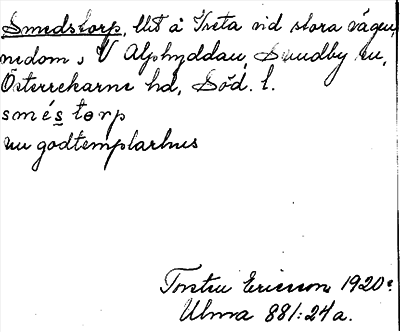 Smedstorp, llt å Treta vid stora vägen,
nedom, V Alphyddan, Sundby sn,
Österrekarne hd, Söd. l.
smés torp
nu godtemplarhus
Torsten Ericsson 1920.
Ulma 881:24a.